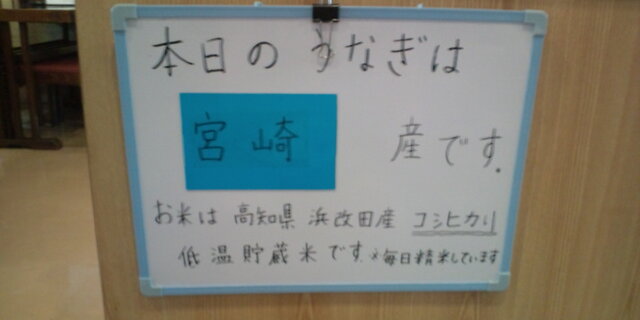 本日のうなぎは
宮崎 産です.
お米は 高知県 浜改田産 コシヒカリ
低温貯蔵米です. ※毎日精米しています